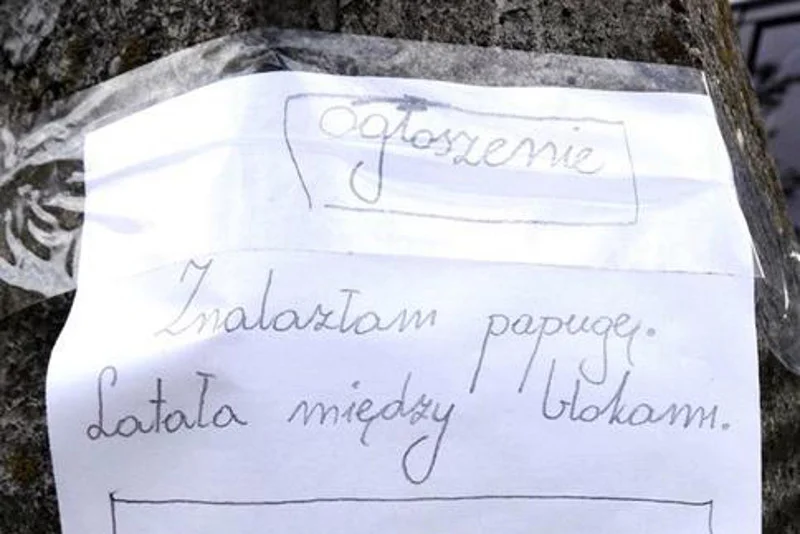 Ogłoszenie
Znalazłam papugę.
Latała między blokami.